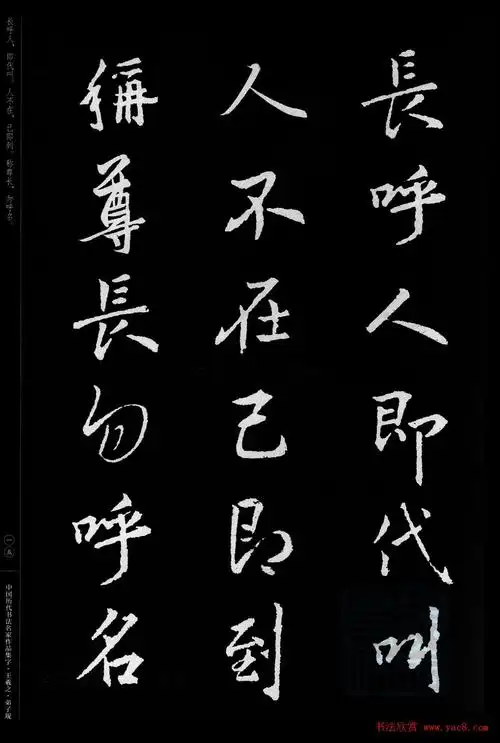 長呼人即代叫
人不在己即到
稱尊長勿呼名
长呼人，即代叫。人不在，己即到。称尊长，勿呼名。
一五
中国历代书法名家作品集字·王羲之·弟子规
书法欣赏 www.yac8.com